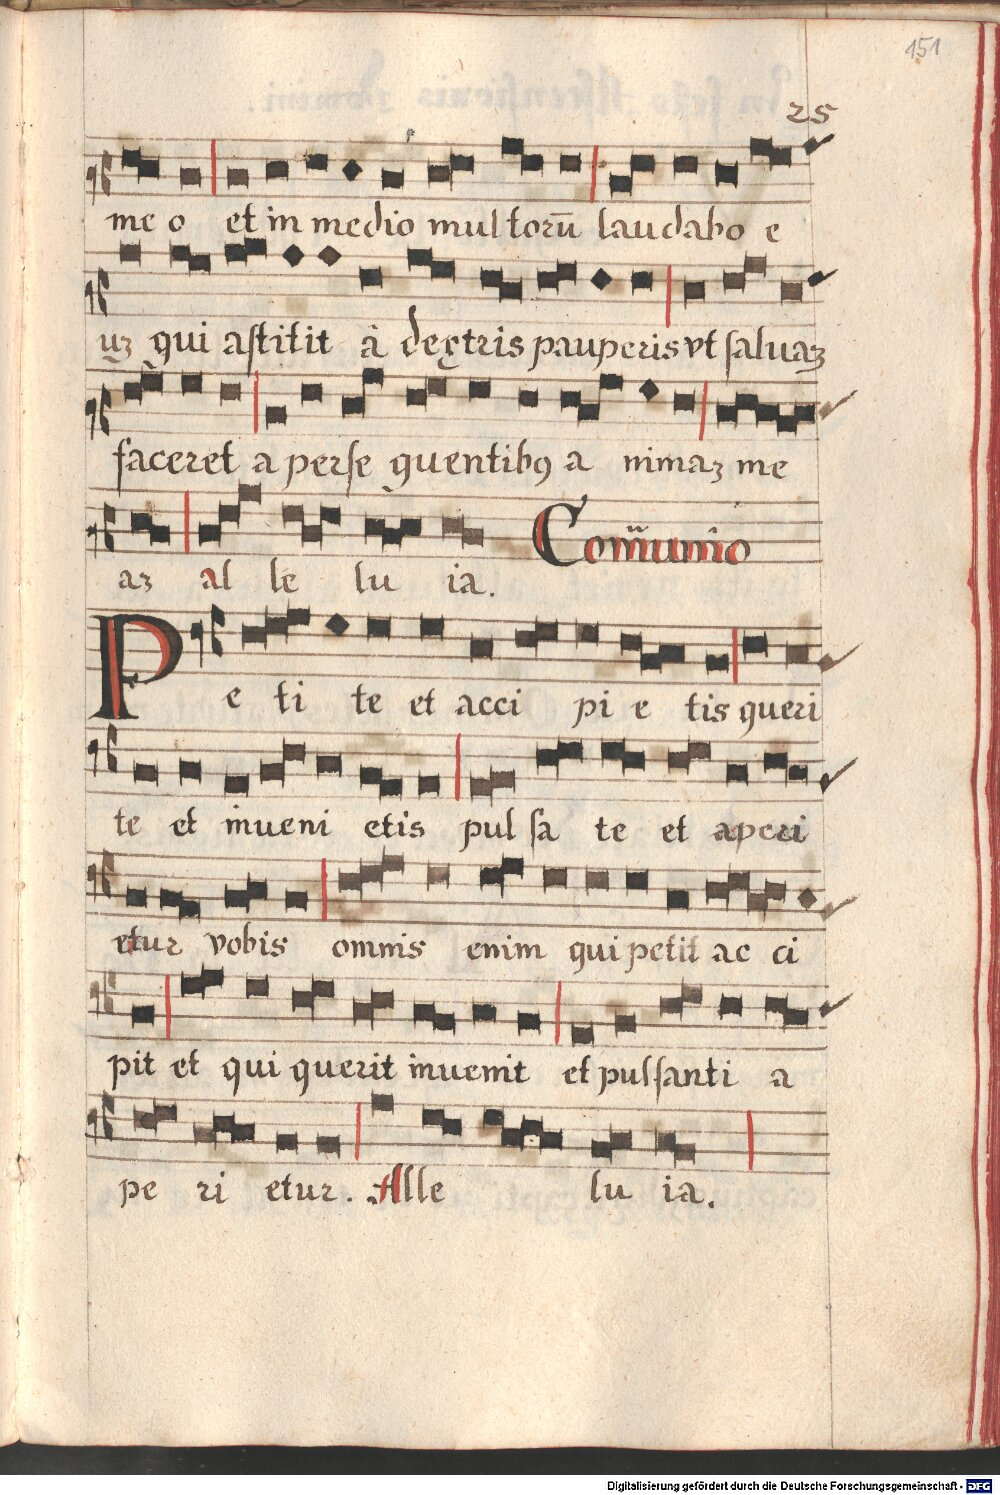 151
25
me o et in medio multorū laudabo e
uʒ qui astitit à dextris pauperis vt saluaʒ
faceret a perse quentibꝯ a nimaʒ me
aʒ al le lu ia.
Com̄unio
Pe ti te et acci pi e tis queri
te et inueni etis pul sa te et aperi
etur vobis omnis enim qui petit ac ci
pit et qui querit inuenit et pulsanti a
pe ri etur. Alle lu ia.
Digitalisierung gefördert durch die Deutsche Forschungsgemeinschaft - DFG